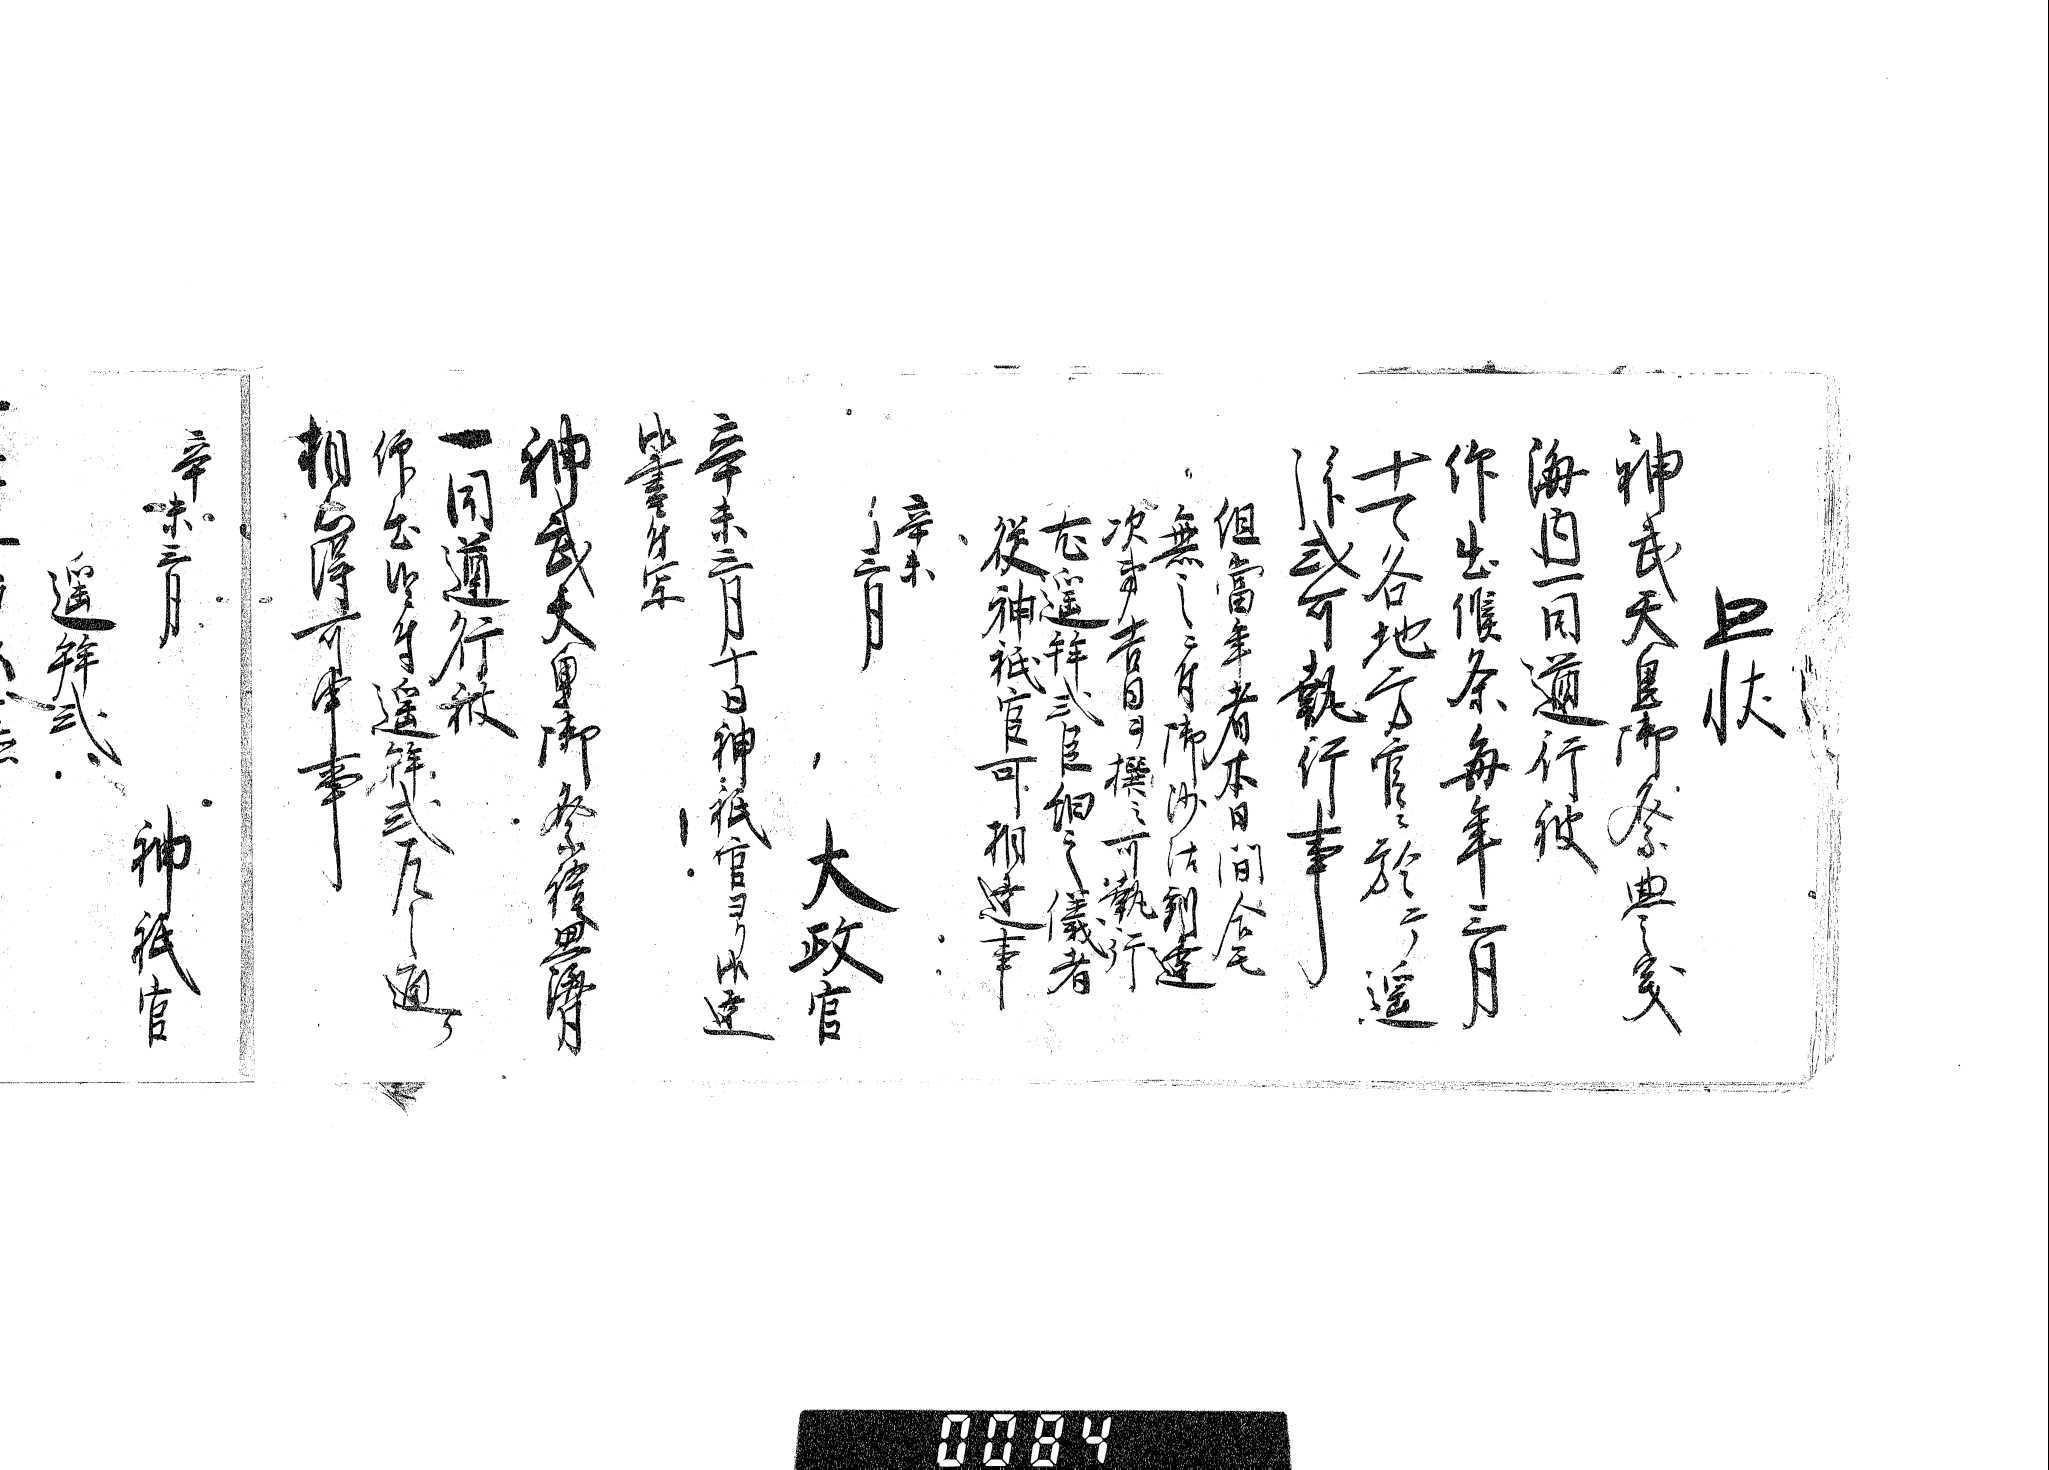 状
神武天皇御祭典之義
海内一同遵行被
仰出候条毎年三月
十一日各地方官ニ於テ遥
拝式可執行事
但當年者本日間合モ
無之ニ付御沙汰到達
次第吉日ヲ撰ミ可執行
尤遥拝式且之儀者
従神祇官可相達事
辛未
三月
大政官
辛未三月十日神祇官ヨリ御達
御書付写
神武天皇御祭海内
一同遵行被
仰出候ニ付遥拝式左之通リ
相心得可申事
辛未三月
神祇官
遥拝式
0084